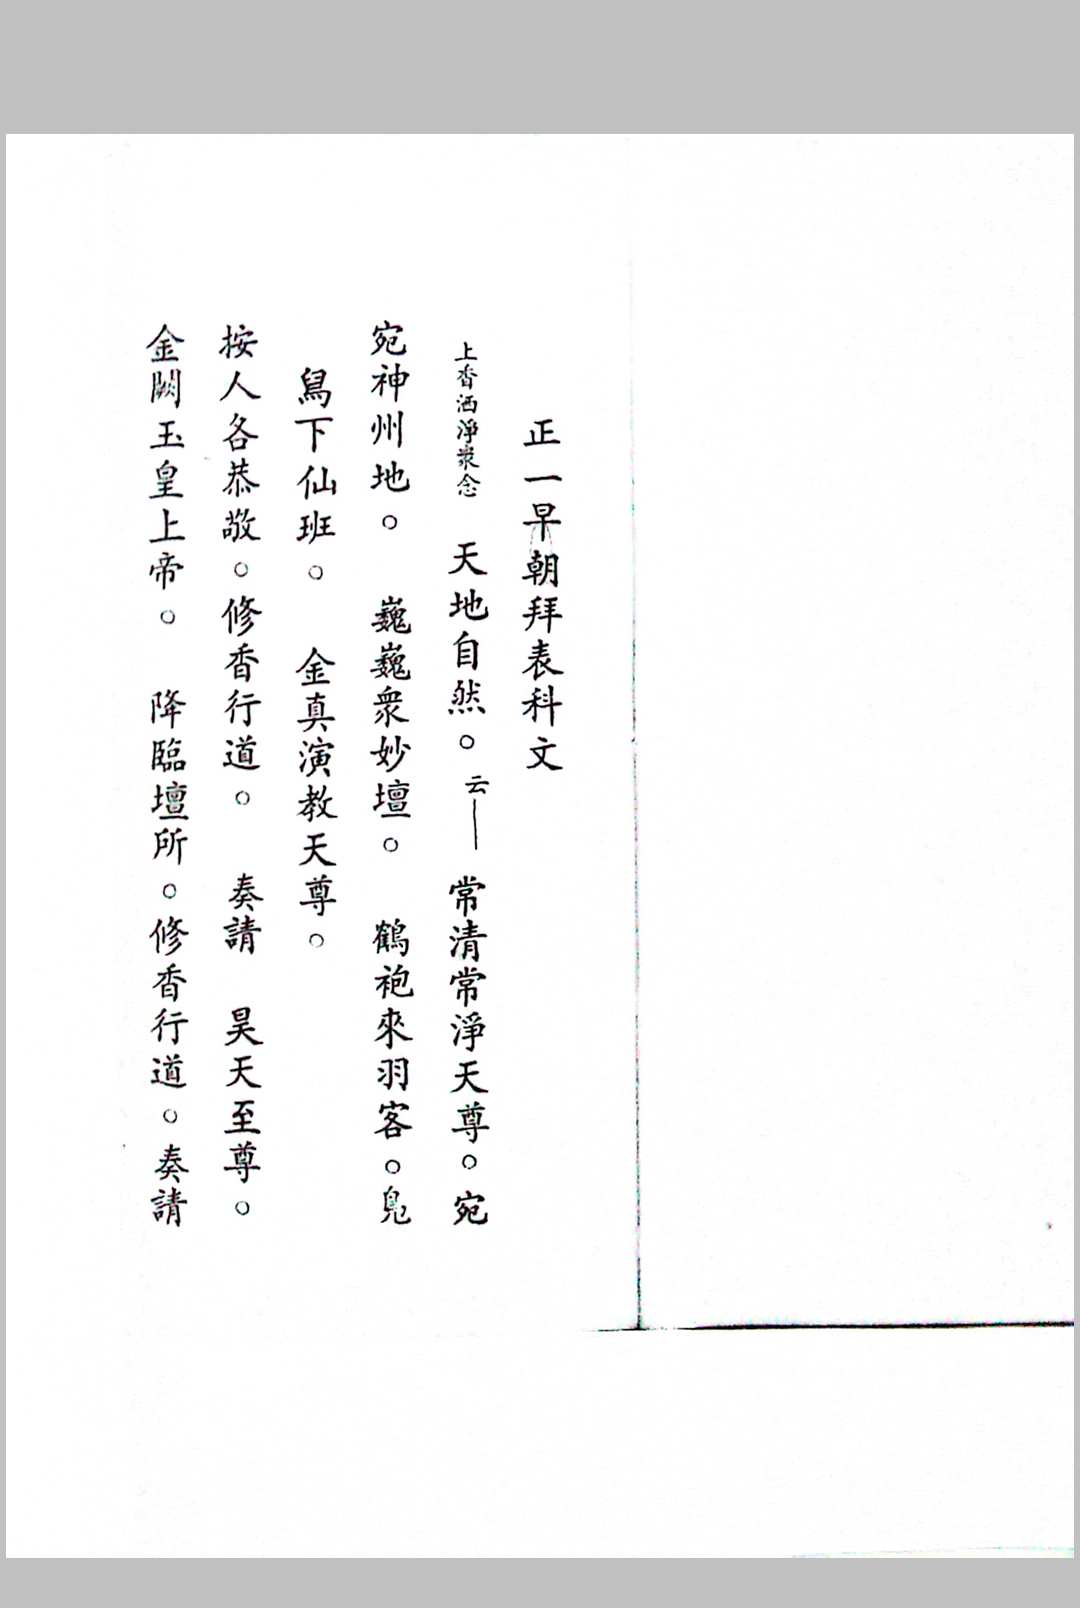 正一早朝拜表科文
上香洒淨衆念　天地自然。云──常清常淨天尊。宛
宛神州地。　巍巍衆妙壇。　鶴袍來羽客。鳬
舄下仙班。　金真演教天尊。
按人各恭敬。修香行道。　奏請　昊天至尊。
金闕玉皇上帝。　降臨壇所。修香行道。奏請